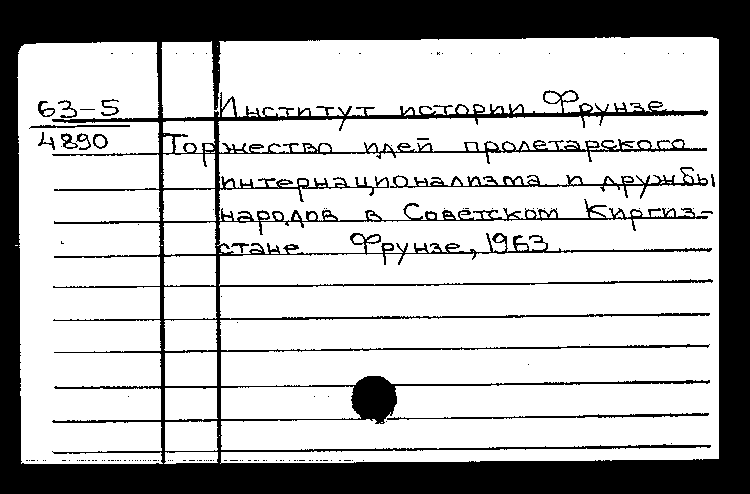 63-5
4890
Институт истории. Фрунзе
Торжество идей пролетарского
интернационализма и дружбы
народов в Советском Киргиз-
стане. Фрунзе, 1963.